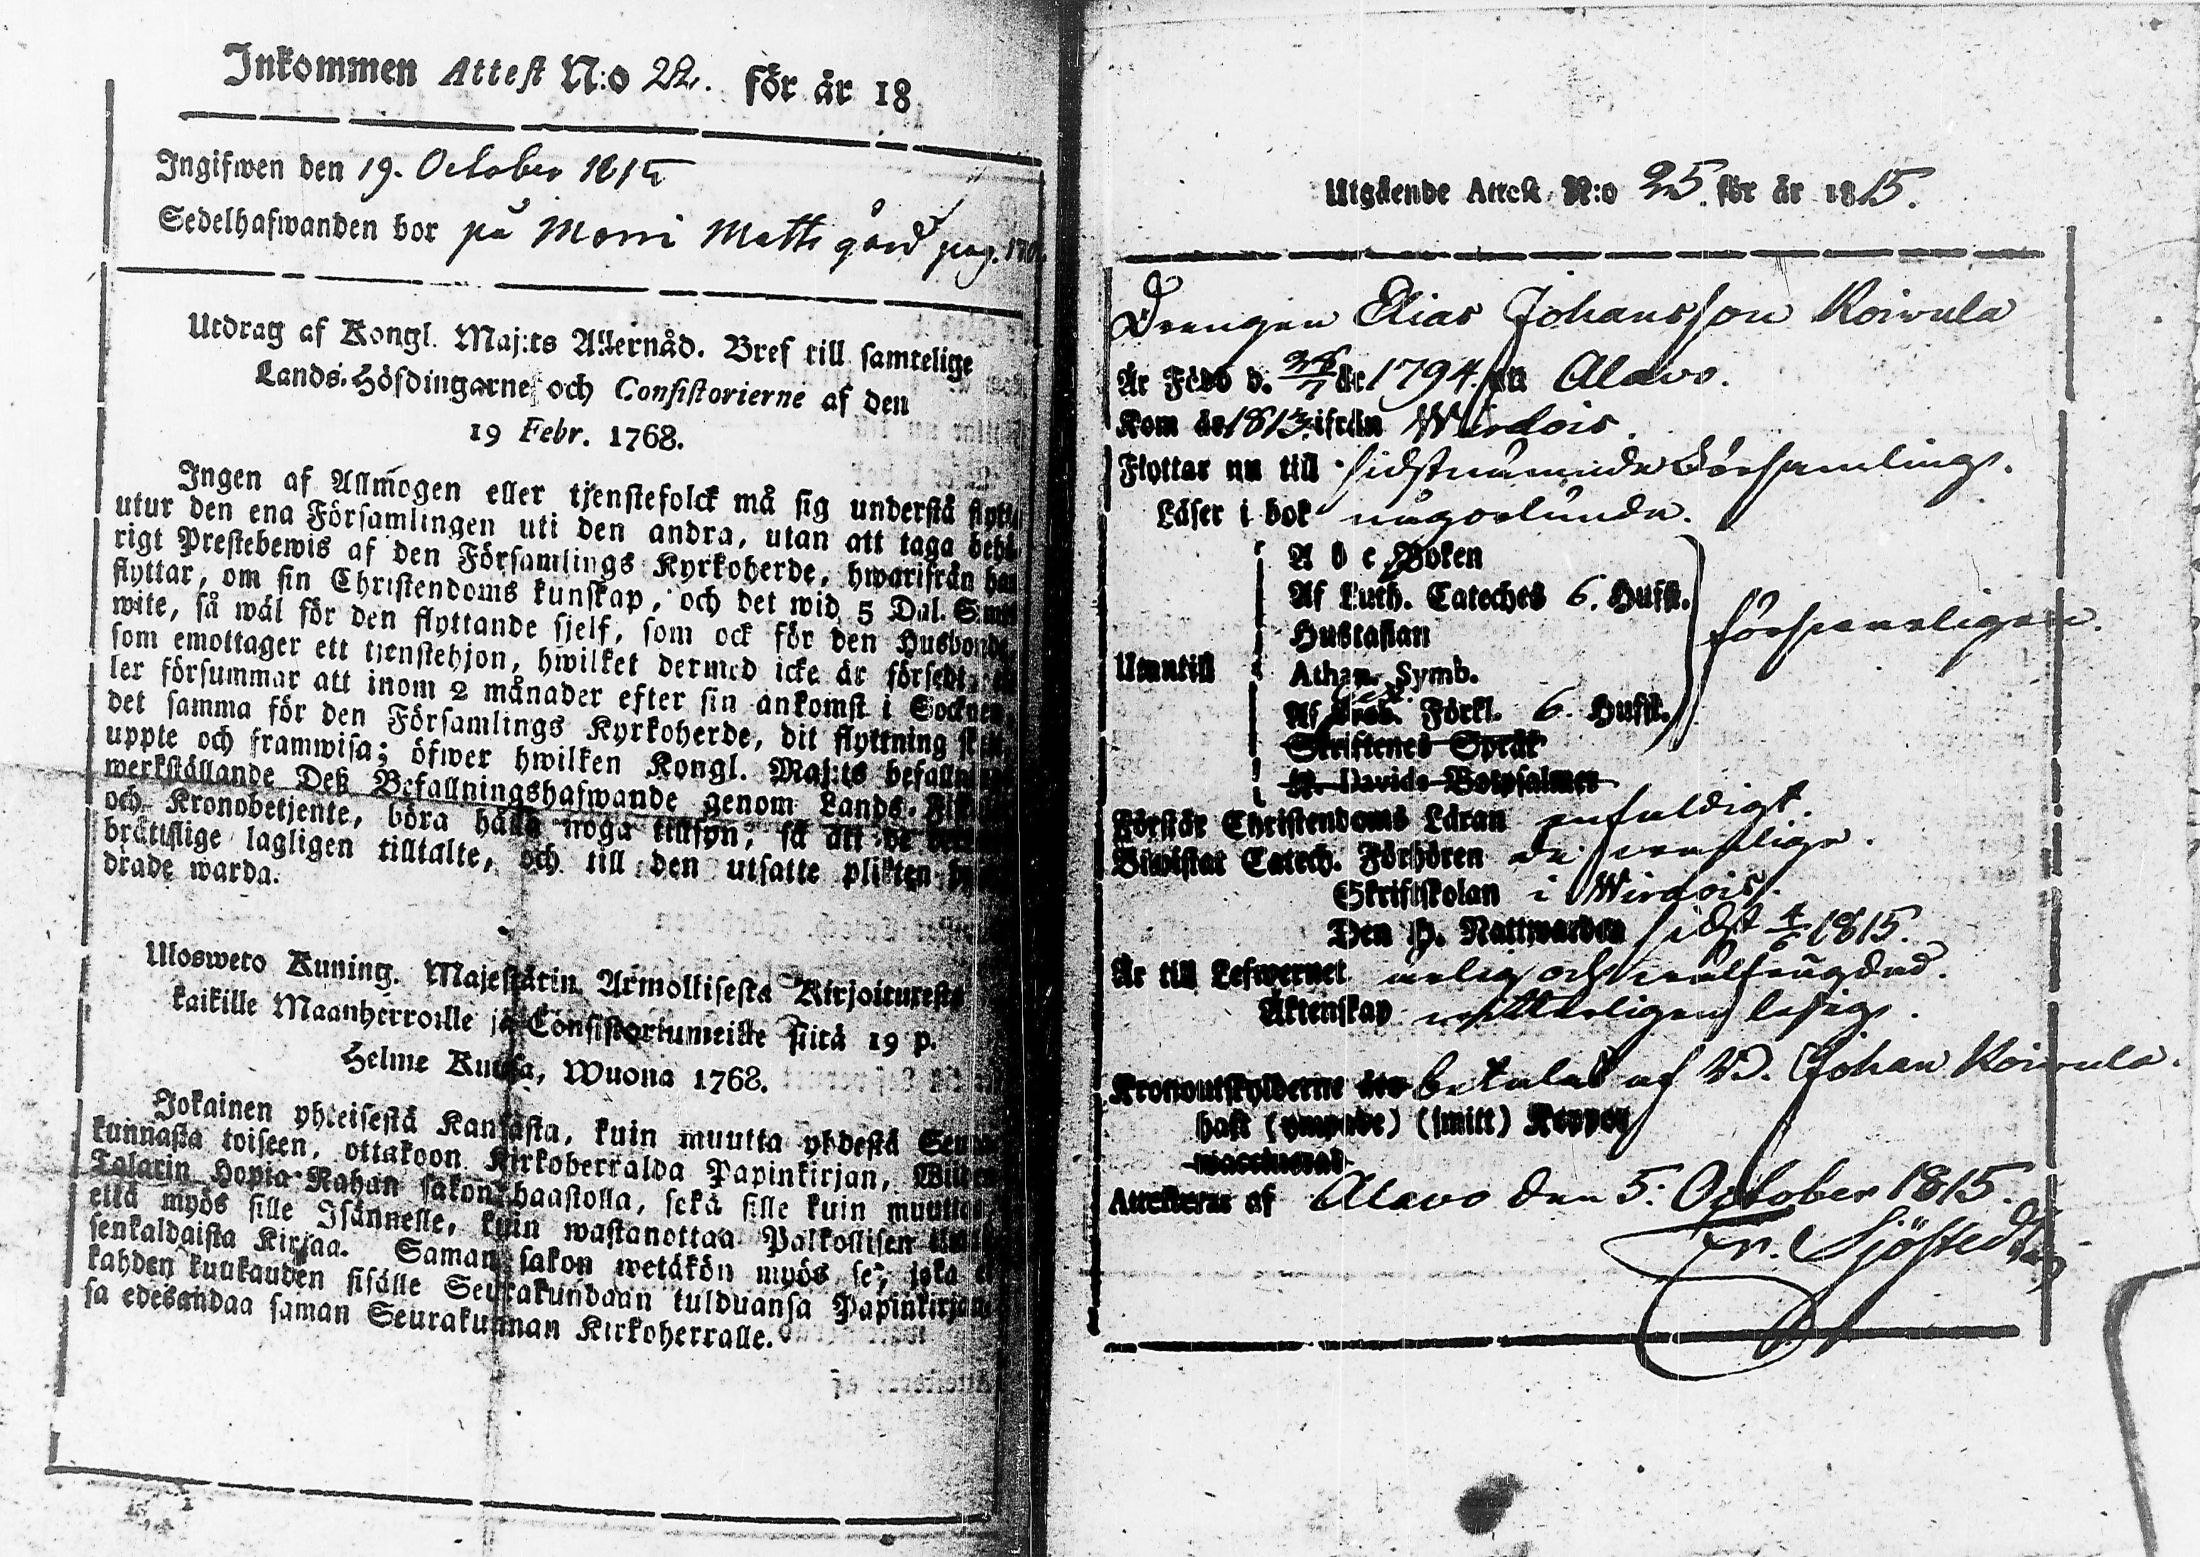 Inkommen Attest N:o 22. för år 18
Ingifwen den 19. October 1815
Sedelhafwanden bor på Morri Matts gård pag.
Utdrag af Kongl. Maj:ts Allernåd. Bref till samtelige
Lands-Höfdingarne och Consistorierne af den
19 Febr. 1768.
Ingen af Allmogen eller tjenstefolck må sig understå
utur den ena Församlingen uti den andra, utan att taga
rigt Prestebewis af den Församlings Kyrkoherde, hwarifrån
flyttar, om sin Christendoms kunskap, och det wid 5 Dal.
wite, så wäl för den flyttande sjelf, som ock för den
som emottager ett tjenstehjon, hwilket dermed icke är
ler försummar att inom 2 månader efter sin ankomst i
det samma för den Församlings Kyrkoherde, dit flyttning
uppte och framwisa; öfwer hwilken Kongl. Maj:ts
werkställande Deß Befallningshafwande genom Lands-
och Kronobetjente, böra hålla noga tillsyn, så att de
bråttslige lagligen tilltalte, och till den utsatte plikten
drade warda.
Ulosweto Kuning. Majestätin Armollisesta Kirjoituresta
kaikille Maanherroille ja Consistoriumeille siitä 19 p.
Helme Kuusa, Wuona 1768.
Jokainen yhteisestä Kansasta, kuin muutta yhdestä
kunnasta toiseen, ottakoon Kirkoherralda Papinkirjan,
Talarin Hopia-Rahan sakon haastolla, sekä sille kuin
että myös sille Isännelle, kuin wastanottaa Palkollisen
senkaldaista Kirjaa. Saman sakon wetäkön myös se, joka
kahden kuukauden sisälle Seurakundaan tulduansa
sa edesandaa saman Seurakunnan Kirkoherralle.
Utgående Attest N:o 25. för år 1815.
Drengen Elias Johansson Koivula
Är Född d. år 1794. in Alavo.
Kom år ifrån Wirdois.
Flyttar nu till sidstnämnde Församling.
Läser i bok någorlunda.
A b c Boken
Af Luth. Cateches 6. Hufst.
Hustaflan
Utantill
Athan. Symb.
Förkl. 6. Hufst.
försvarligen.
Skriftenes Språk
K. Davids Botpsalmer
Förstår Christendoms Läran enfaldigt.
Biwistat Catech. Förhören
Skriftskolan i Wirdois.
Den H. Nattwarden sidst 4/6 1815.
Är till Lefwernet ärlig och
Äktenskap ledig.
Kronoutskylderne betalas af Johan Koivula.
haft (ympade) (smitt) Koppor
Attesteras af Alavo den 5. October 1815.
Fr. Sjöstedt